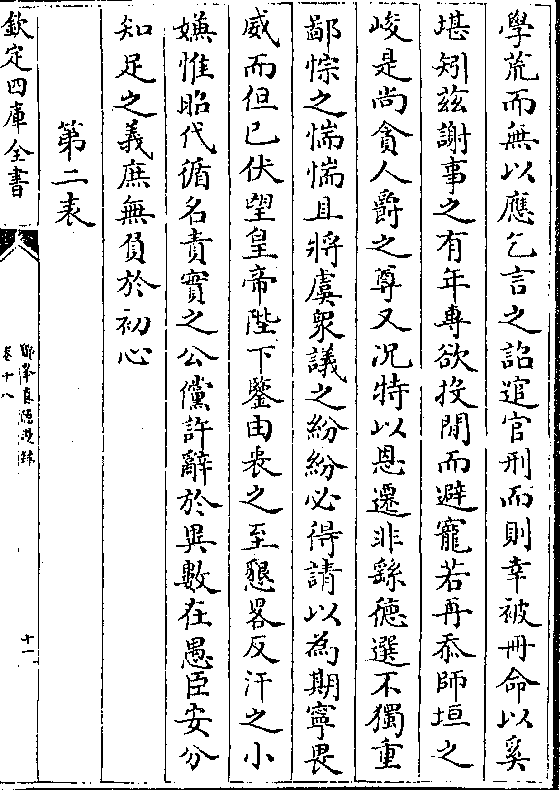 學荒而無以應乞言之詔逭官刑而則幸被冊命以奚
堪矧茲謝事之有年專欲投閒而避寵若再忝師垣之
峻是尚貪人爵之尊又况特以恩遷非繇德選不獨重
鄙悰之惴惴且將虞衆議之紛紛必得請以為期寧畏
威而但已伏望皇帝陛下鑒由衷之至懇畧反汗之小
嫌惟昭代循名責實之公儻許辭於異數在愚臣安分
知足之義庶無負於初心
第二表
欽定四庫全書
鄮峯真隱漫録
卷十八
十一